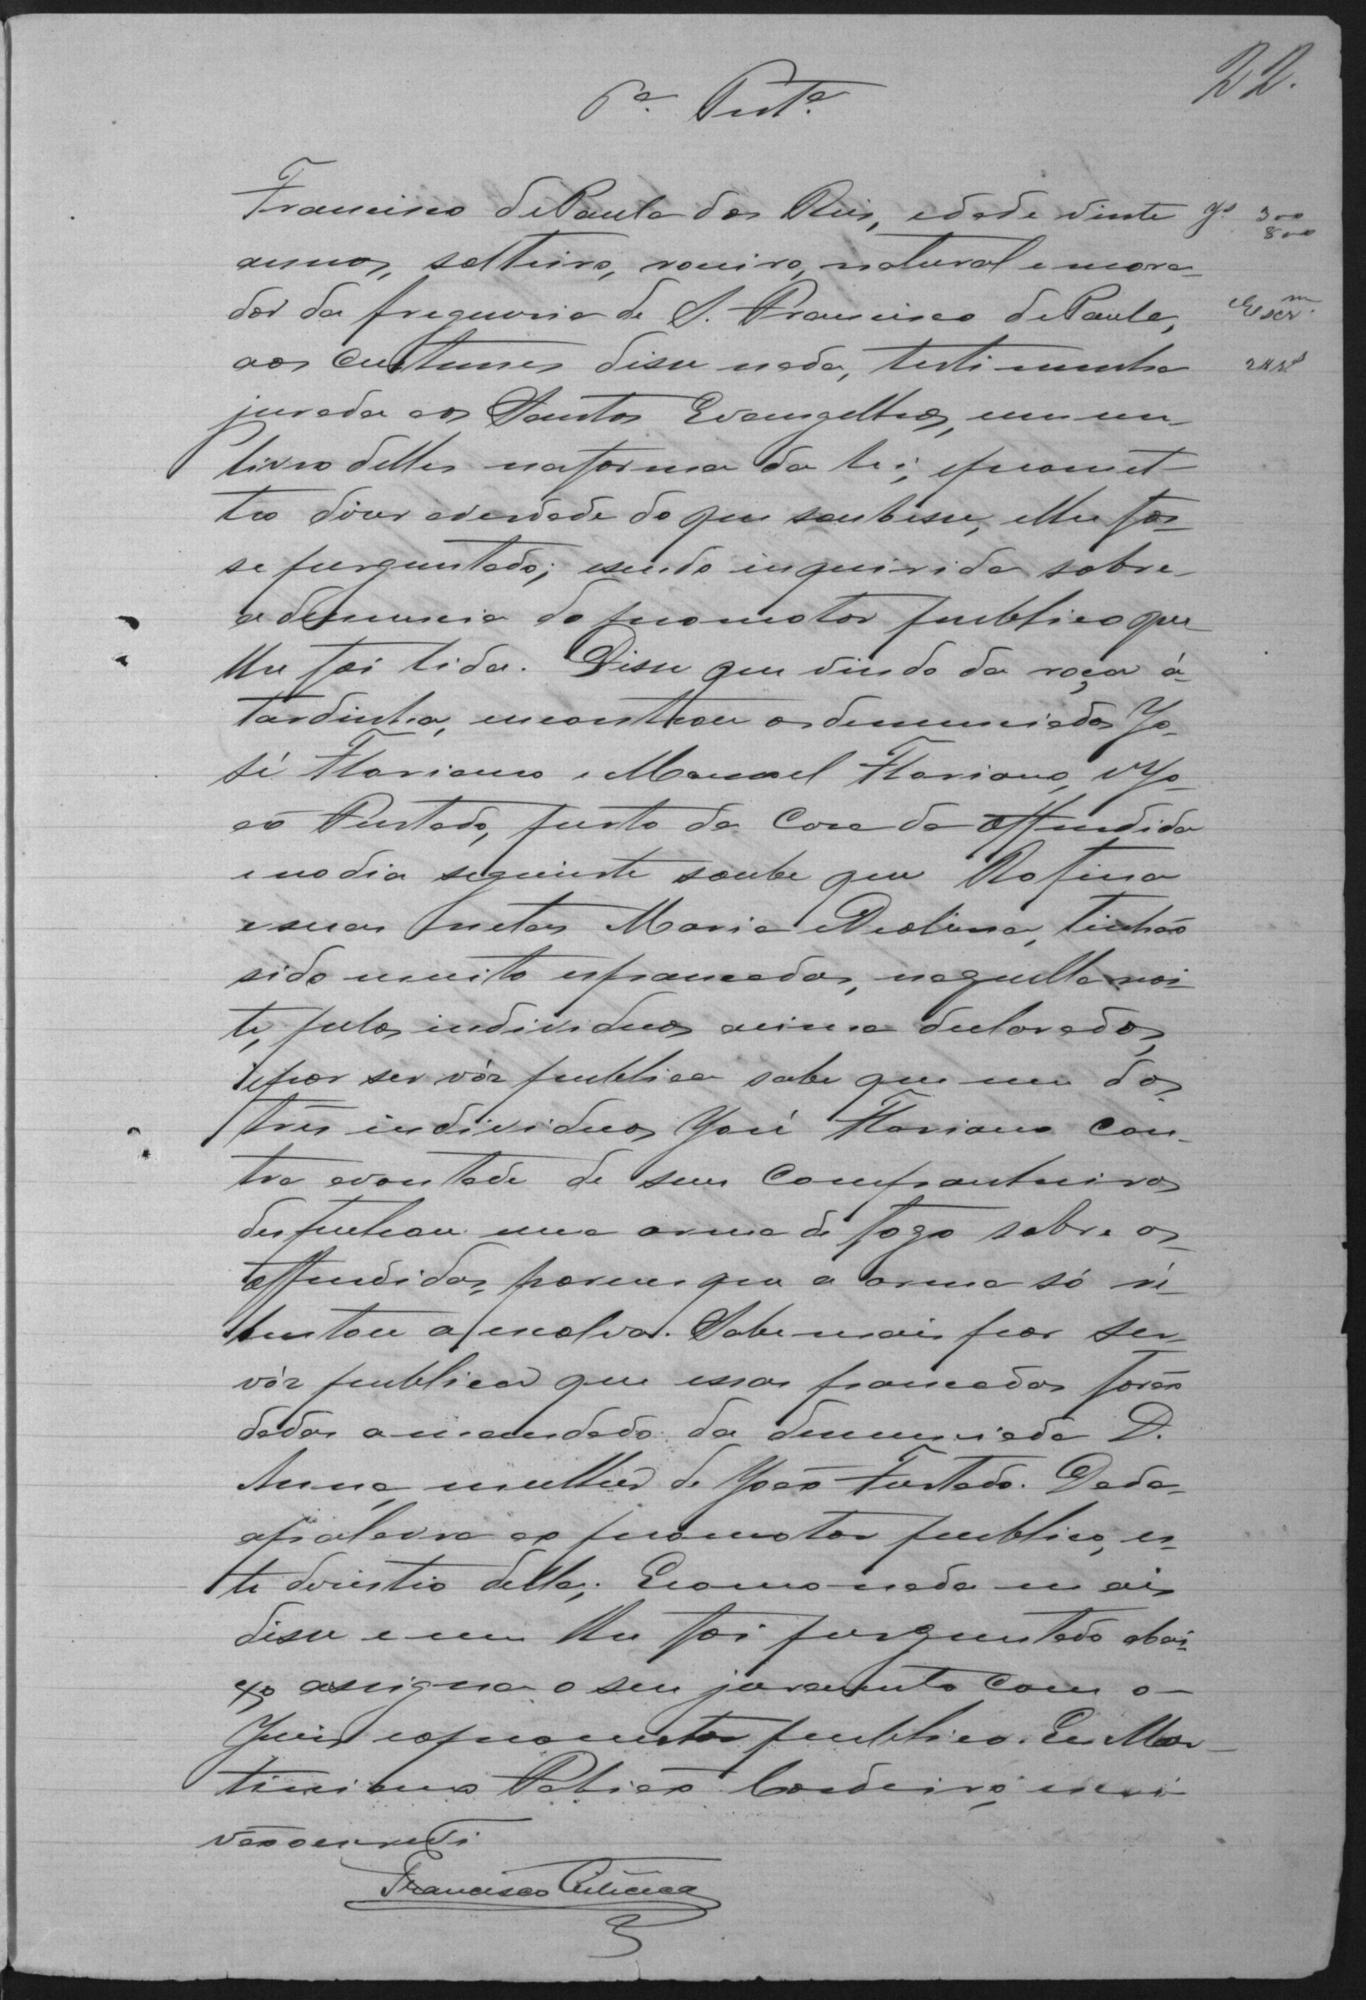 22.
6ª Testª
Francisco de Paula dos Reis, edade vinte
annos, solteiro, roceiro, natural e mora-
dor da freguesia de S. Francisco de Paula,
aos custumes disse nada, testimunha
jurada aos Santos Evangelhos, em um
livro delles na forma da lei; e promet-
teo diser a verdade do que soubesse, e lhe fos-
se perguntado; e sendo inquirida sobre
a denuncia do promotor publico que
lhe foi lida. Disse que vindo da roça á
tardinha, encontrou os denunciados Jo-
sé Floriano e Manoel Floriano, e Jo-
ão Furtado, perto da casa da offendida
e no dia seguinte soube que Rofina
e suas netas Maria e Deolina, tinhão
sido muito espancadas, naquella noi-
te, pelos individuos acima declarados,
e por ser vóz publica sabe que um dos
tres individuos José Floriano con-
tra a vontade de seus companheiros
desfechou uma arma de fogo sobre os
offendidos, porem que a arma só re-
bentou a espoleta. Sabe mais por ser
vóz publica que essas pancadas forão
dadas a mandado da denunciada D.
Anna, mulher de João Furtado. Dada
a palavra ao promotor publico, es-
te desistio della; E como nada mais
disse e nem lhe foi perguntado abai-
xo assigna o seu juramento com o
Juiz e o promotor publico. Eu Mar-
tiniano Cordeiro, escri-
vão o escrevi
Francisco
Jº 300
800
Escrm.